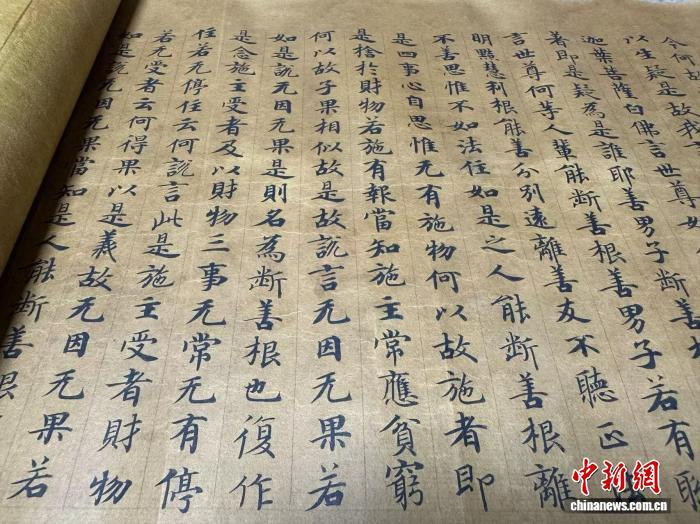 今何故
以生疑是故我
迦葉菩薩白佛言世尊如
著即是疑為是誰耶善男子
言世尊何等人輩能斷善根善男子若有聰
明點慧利根能善分別遠離善友不聽正
不善思惟不如法住如是之人能斷善根離
是四事心自思惟无有施物何以故施者即
是捨於財物若施有報當知施主常應貧窮
何以故子果相似故是故說言无因无果若
如是說无因无果是則名為斷善根也復作
是念施主受者及以財物三事无常无有停
住若无停住云何說言此是施主受者財物
若无受者云何得果以是義故无因无果若
如是說无因无果當知是人能斷善根
中新网
chinanews.com